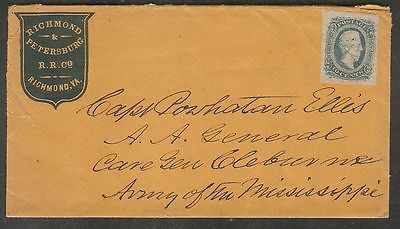 RICHMOND
&
PETERSBURG
R.R.CO
RICHMOND, VA.
POSTAGE
Capt Powhatan Ellis
A. A. General
Care Gen Cleburne
Army of the Mississippi